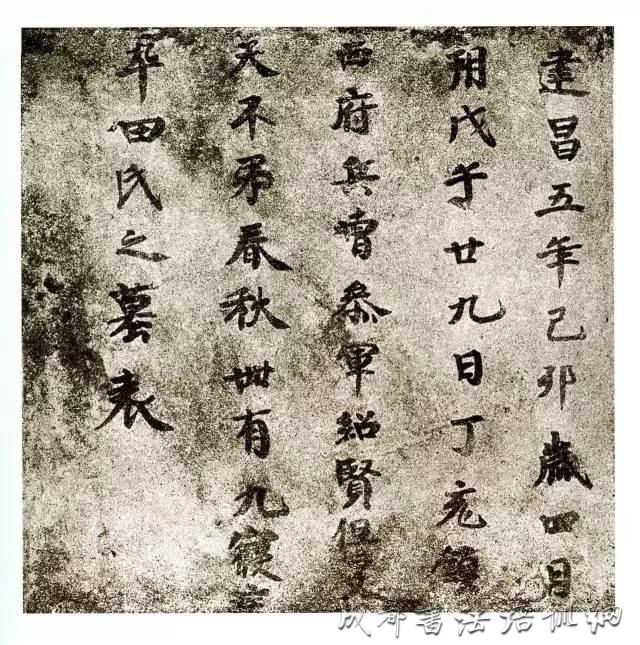 建昌五年己卯歲四月
朔戊午廿九日丁亥鎮
西府兵曹叅軍紹賢但旻
天不弔春秋卌有九寢
卒田氏之墓表
成都书法培训网